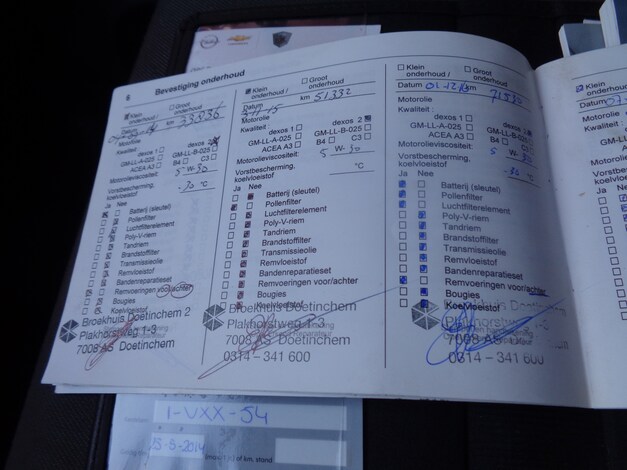 6
Bevestiging onderhoud
Klein onderhoud /
Groot onderhoud
Datum
km 33.936
Motorolie
Kwaliteit :
dexos 1
dexos 2
GM-LL-A-025
GM-LL-B-025
ACEA A3
B4
C3
Motorolieviscositeit:
5 W-30
Vorstbescherming, koelvloeistof
-30 °C
Ja Nee
Batterij (sleutel)
Pollenfilter
Luchtfilterelement
Poly-V-riem
Tandriem
Brandstoffilter
Transmissieolie
Remvloeistof
Bandenreparatieset
Remvoeringen voor/achter
Bougies
Koelvloeistof
Broekhuis Doetinchem 2
Plakhorstweg 1-3
7008 AS Doetinchem
Klein onderhoud /
Groot onderhoud
Datum
km 51332
Motorolie
Kwaliteit :
dexos 1
dexos 2
GM-LL-A-025
GM-LL-B-025
ACEA A3
B4
C3
Motorolieviscositeit:
5 W-30
Vorstbescherming, koelvloeistof
°C
Ja Nee
Batterij (sleutel)
Pollenfilter
Luchtfilterelement
Poly-V-riem
Tandriem
Brandstoffilter
Transmissieolie
Remvloeistof
Bandenreparatieset
Remvoeringen voor/achter
Bougies
Koelvloeistof
Broekhuis Doetinchem
Plakhorstweg 1-3
7008 AS Doetinchem
0314 - 341 600
Klein onderhoud /
Groot onderhoud
Datum
km
Motorolie
Kwaliteit :
dexos 1
dexos 2
GM-LL-A-025
GM-LL-B-025
ACEA A3
B4
C3
Motorolieviscositeit:
5 W-30
Vorstbescherming, koelvloeistof
-30 °C
Ja Nee
Batterij (sleutel)
Pollenfilter
Luchtfilterelement
Poly-V-riem
Tandriem
Brandstoffilter
Transmissieolie
Remvloeistof
Bandenreparatieset
Remvoeringen voor/achter
Bougies
Koelvloeistof
Doetinchem
Plakhorstweg
7008 AS
0314 - 341 600
1-VXX-54
25-5-2014